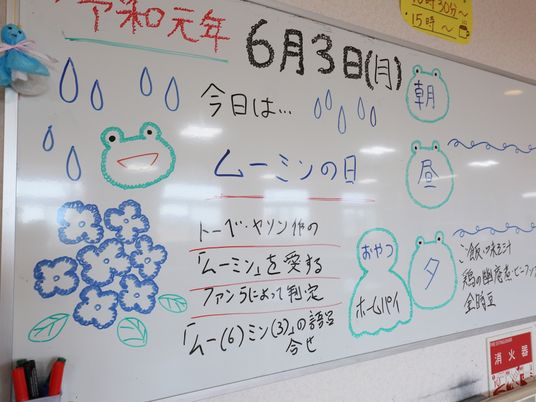 令和元年
6月3日(月)
今日は…
ムーミンの日
トーベ・ヤンソン作の
「ムーミン」を愛する
ファンらによって制定
「ムー(6)ミン(3)」の語呂
合せ
朝
昼
おやつ
ホームパイ
夕
ご飯・味そ汁
鶏の幽庵煮・ビーフン
金時豆
15時～
消火器